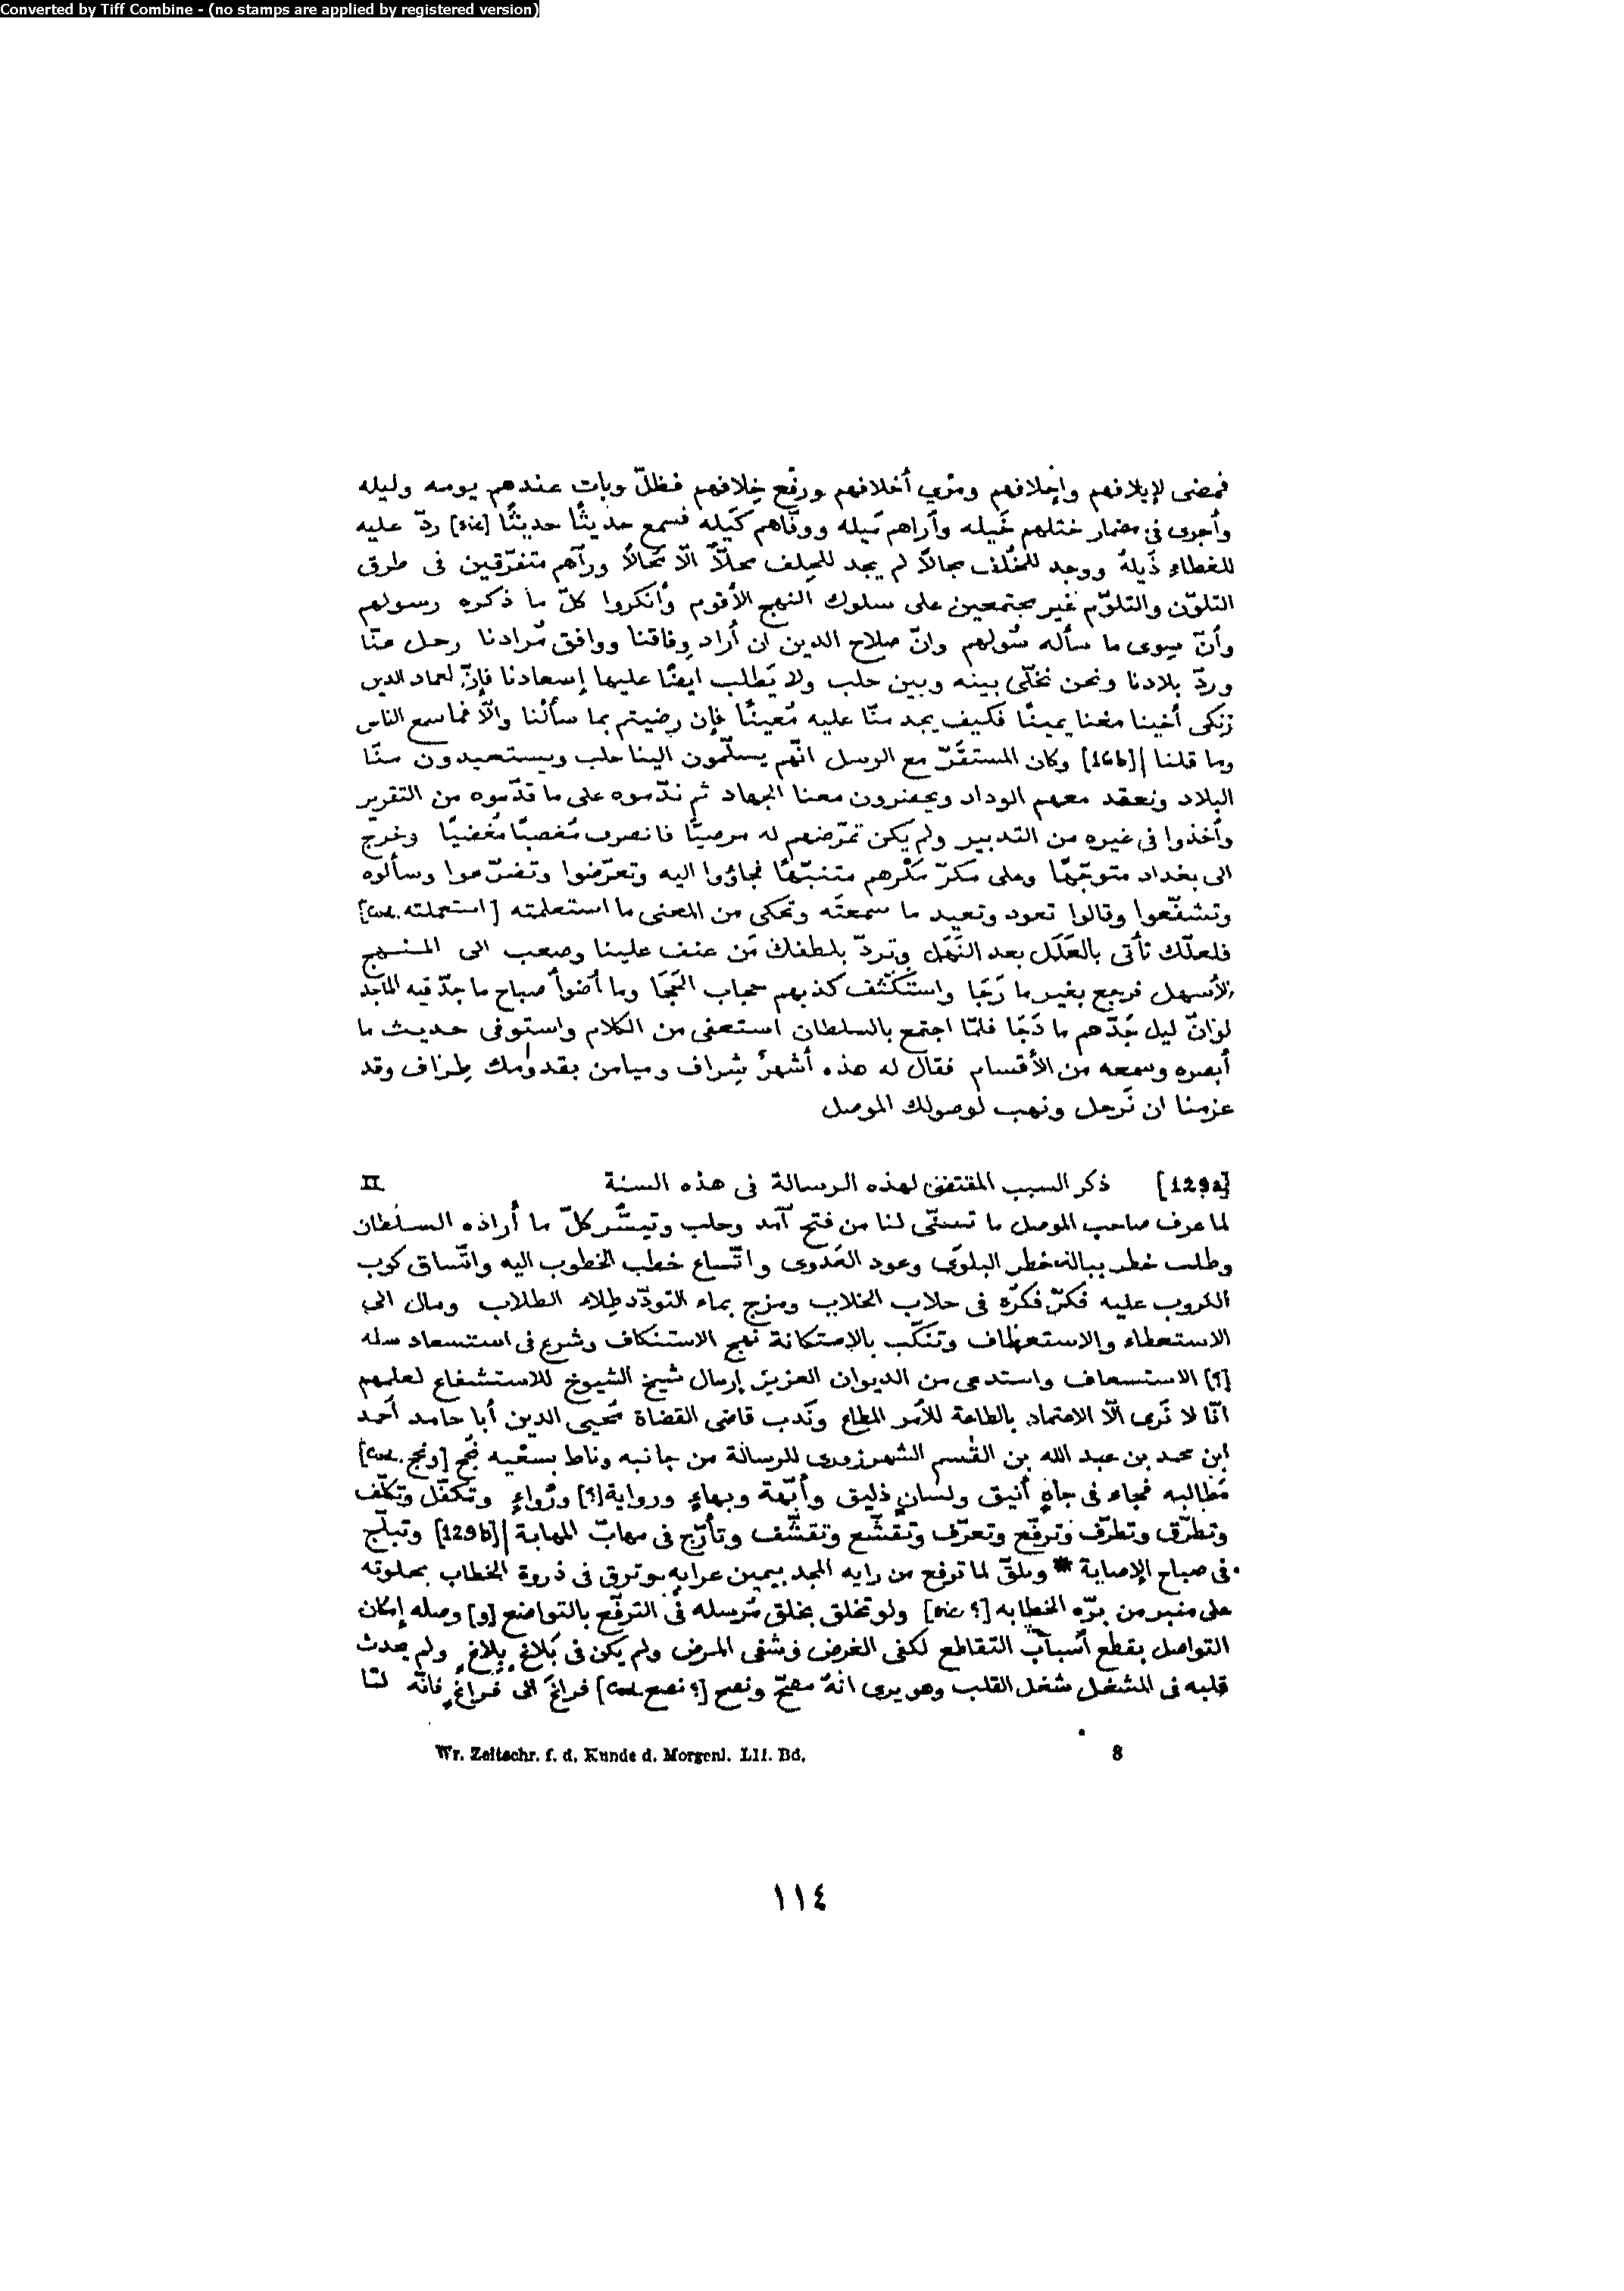 Converted by Tiff Combine - (no stamps are applied by registered version)
فمضى لإيلافهم وإحلافهم ومَرْي أخلافهم ورفع خِلافهم فظلّ وبات عندهم يومه وليله
وأجرى فى مضمار ختلهم خَيله وأراهم مَيله ووفّاهم كَيله فسمع حديثًا حديثًا [sic] ردّ عليه
للغطاء ذَيلهُ ووجد للخُلف مجالاً لم يجد للحِلف محلاًّ الّا مُحالاً ورآهم متفرّقين فى طرق
التلوّن والتلوّم غير مجتمعين على سلوك النهج الأقوم وأنكروا كلّ ما ذكره رسولهم
وأنّ سِوى ما سأله سُولهم وانّ صلاح الدين ان أراد وِفاقنا ووافق مُرادنا رحل عنّا
وردّ بلادنا ونحن نخلّى بينه وبين حلب ولا يَطلب ايضًا عليها إسعادنا فإنّ لعماد الدين
زنكى أخينا معنا يمينًا فكيف يجد منّا عليه مُعينًا فإن رضيتم بما سألْنا والّا فما سمع الناس
وما قلنا |[16b] وكان المستقَرّ مع الرسل انّهم يسلّمون الينا حلب ويستعيدون منّا
البلاد ونعقد معهم الوداد ويحضرون معنا الجهاد ثم ندّموه على ما قدّموه من التقرير
وأخذوا فى غيره من التدبير ولم يكن تمرّضهم له مرضيًّا فانصرف مُغضبًا مُغضيًا وخرج
الى بغداد متوجّهًا وعلى مكرّ مَكْرهم متنبّهًا فجاؤوا اليه وتعرّضوا وتضرّعوا وسألوه
وتشفّعوا وقالوا تعود وتعيد ما سمعتَه وتحكى من المعنى ما استعلمته [استعملته .Cod]
فلعلّك تأتى بالعَلَل بعد النَهَل وتردّ بلطفك مَن عنف علينا وصعب الى المنهج
الأسهل فرجع بغير ما رَجَا واستَكْشف كذبهم حجاب الحَجَا وما أضوأ صباح ما جدّ فيه الماجد
لو انّ ليل جَدّهم ما دَجَا فلمّا اجتمع بالسلطان استعفى من الكلام واستوفى حديث ما
أبصره وسمعه من الأقسام فقال له هذه أشهرٌ شِراف وميامن بقدومك طِراف وقد
عزمنا ان نَرحل ونهب لوصولك الموصل
[129a] ذكر السبب المقتضى لهذه الرسالة فى هذه السنة II
لما عرف صاحب الموصل ما تسنّى لنا من فتح آمد وحلب وتيسُّر كلّ ما أراده السلطان
وطلب خطر بباله خطر البلوَى وعود العَدوى واتّساع خطب الخطوب اليه واتّساق كوب
الكروب عليه فكرّ فكرَه فى حلاب الخلاب ومزج بماء التودّد طِلاء الطلاب ومال الى
الاستعطاء والاستعطاف وتنكّب بالاستكانة نهج الاستنكاف وشرع فى استسعاد سله
[؟] الاستسعاف واستدعى من الديوان العزيز إرسال شيخ الشيوخ للاستشفاع لعلمهم
انّا لا نَرى الّا الاعتماد بالطاعة للأمر المطاع ونَدب قاضى القضاة مُحيى الدين أبا حامد أحمد
ابن محمد بن عبد الله بن القٰسم الشهرزورى للرسالة من جانبه وناط بسعْيه نُجْح [ونجح .Cod]
مَطالبه فجاء فى جاهٍ أنيق ولسانٍ ذليق وأُبّهة وبهاءٍ ورواية[؟] ورُواءٍ وتكفّل وتكلّف
وتطرّق وتطرّف وترفّع وتعرّف وتقشّع وتقشّف وتأرّج فى مهابّ المهابة |[129b] وتبلّج
فى صباح الإصابة * وتلقّ لما ترفع من رايه المجد بيمين عرابه وترقى فى ذروة الخطاب بحلوته
على منبر من برّه الخطابه [؟ sic] ولو تخلّق بخلق مُرسله فى الترفّع بالتواضع [و] وصله إمكان
التواصل بقطع أسباب التقاطع لكفى الغرض وشفى المرض ولم يكن فى بَلاغٍ بِلاغٍ ولم يحدث
قلبه فى المشغل شغل القلب وهو يرى انهُ مصحّ ونصح [؟ نصع .Cod] فراغَ الى فَراغٍ فانّه لمّا
Wr. Zeitschr. f. d. Kunde d. Morgenl. LII. Bd. 8
١١٤